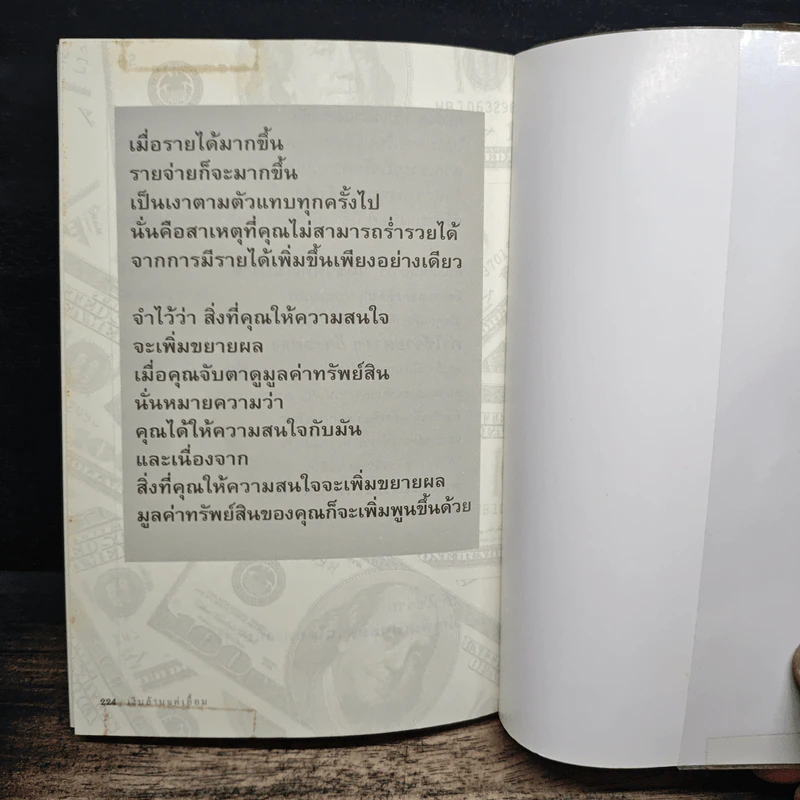 เมื่อรายได้มากขึ้น
รายจ่ายก็จะมากขึ้น
เป็นเงาตามตัวแทบทุกครั้งไป
นั่นคือสาเหตุที่คุณไม่สามารถร่ำรวยได้
จากการมีรายได้เพิ่มขึ้นเพียงอย่างเดียว
จำไว้ว่า สิ่งที่คุณให้ความสนใจ
จะเพิ่มขยายผล
เมื่อคุณจับตาดูมูลค่าทรัพย์สิน
นั่นหมายความว่า
คุณได้ให้ความสนใจกับมัน
และเนื่องจาก
สิ่งที่คุณให้ความสนใจจะเพิ่มขยายผล
มูลค่าทรัพย์สินของคุณก็จะเพิ่มพูนขึ้นด้วย
224 เงินล้านแค่เอื้อม